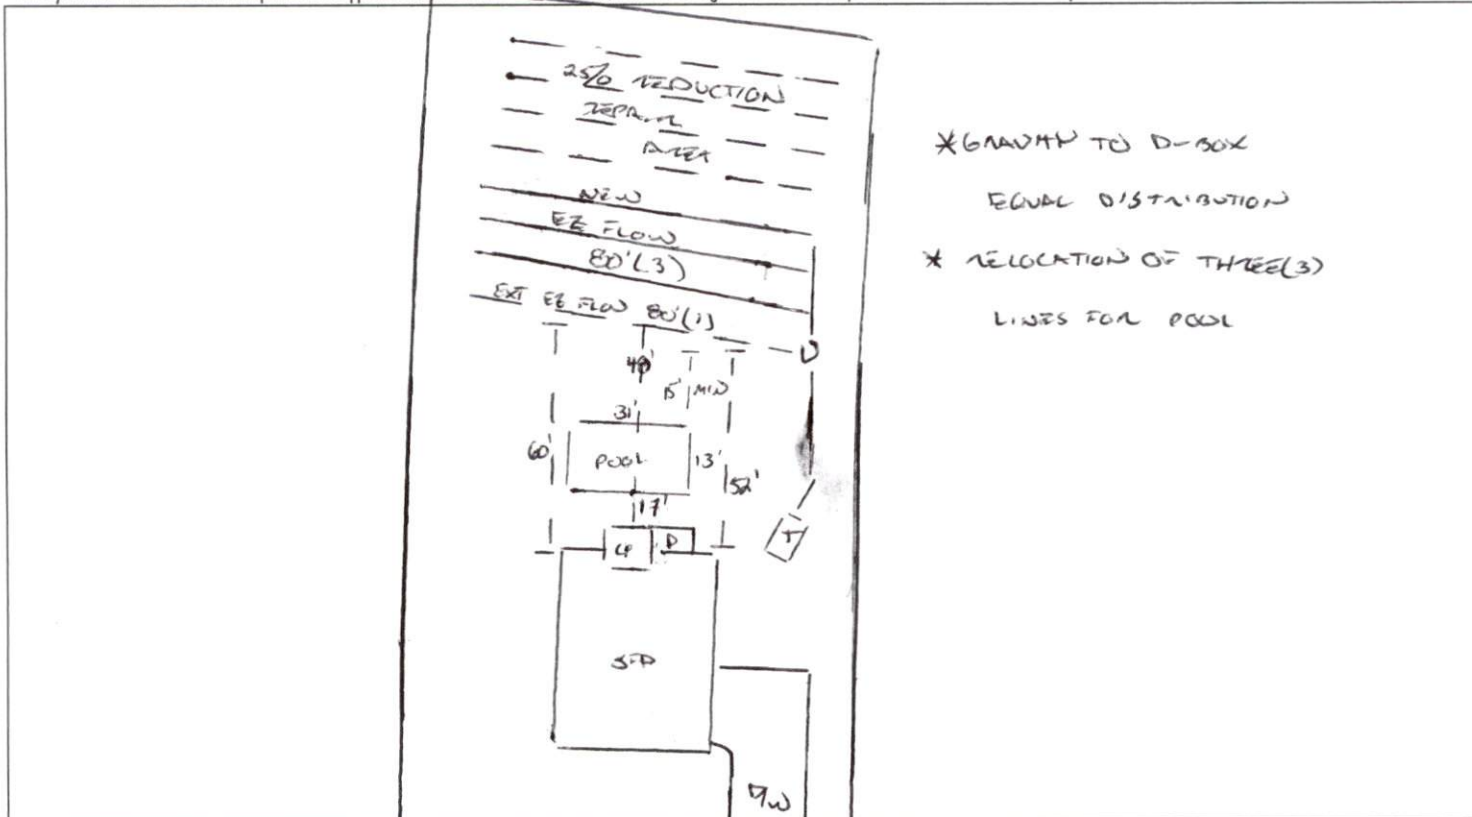 25% REDUCTION
REPAIR
AREA
NEW
EZ FLOW
80'(3)
EXT EZ FLOW 80'(1)
D
15' MIN
31'
60'
POOL
13'
52'
17'
CP
D
T
SFD
D/W
*GRAVITY TO D-BOX
EQUAL DISTRIBUTION
* RELOCATION OF THREE(3)
LINES FOR POOL